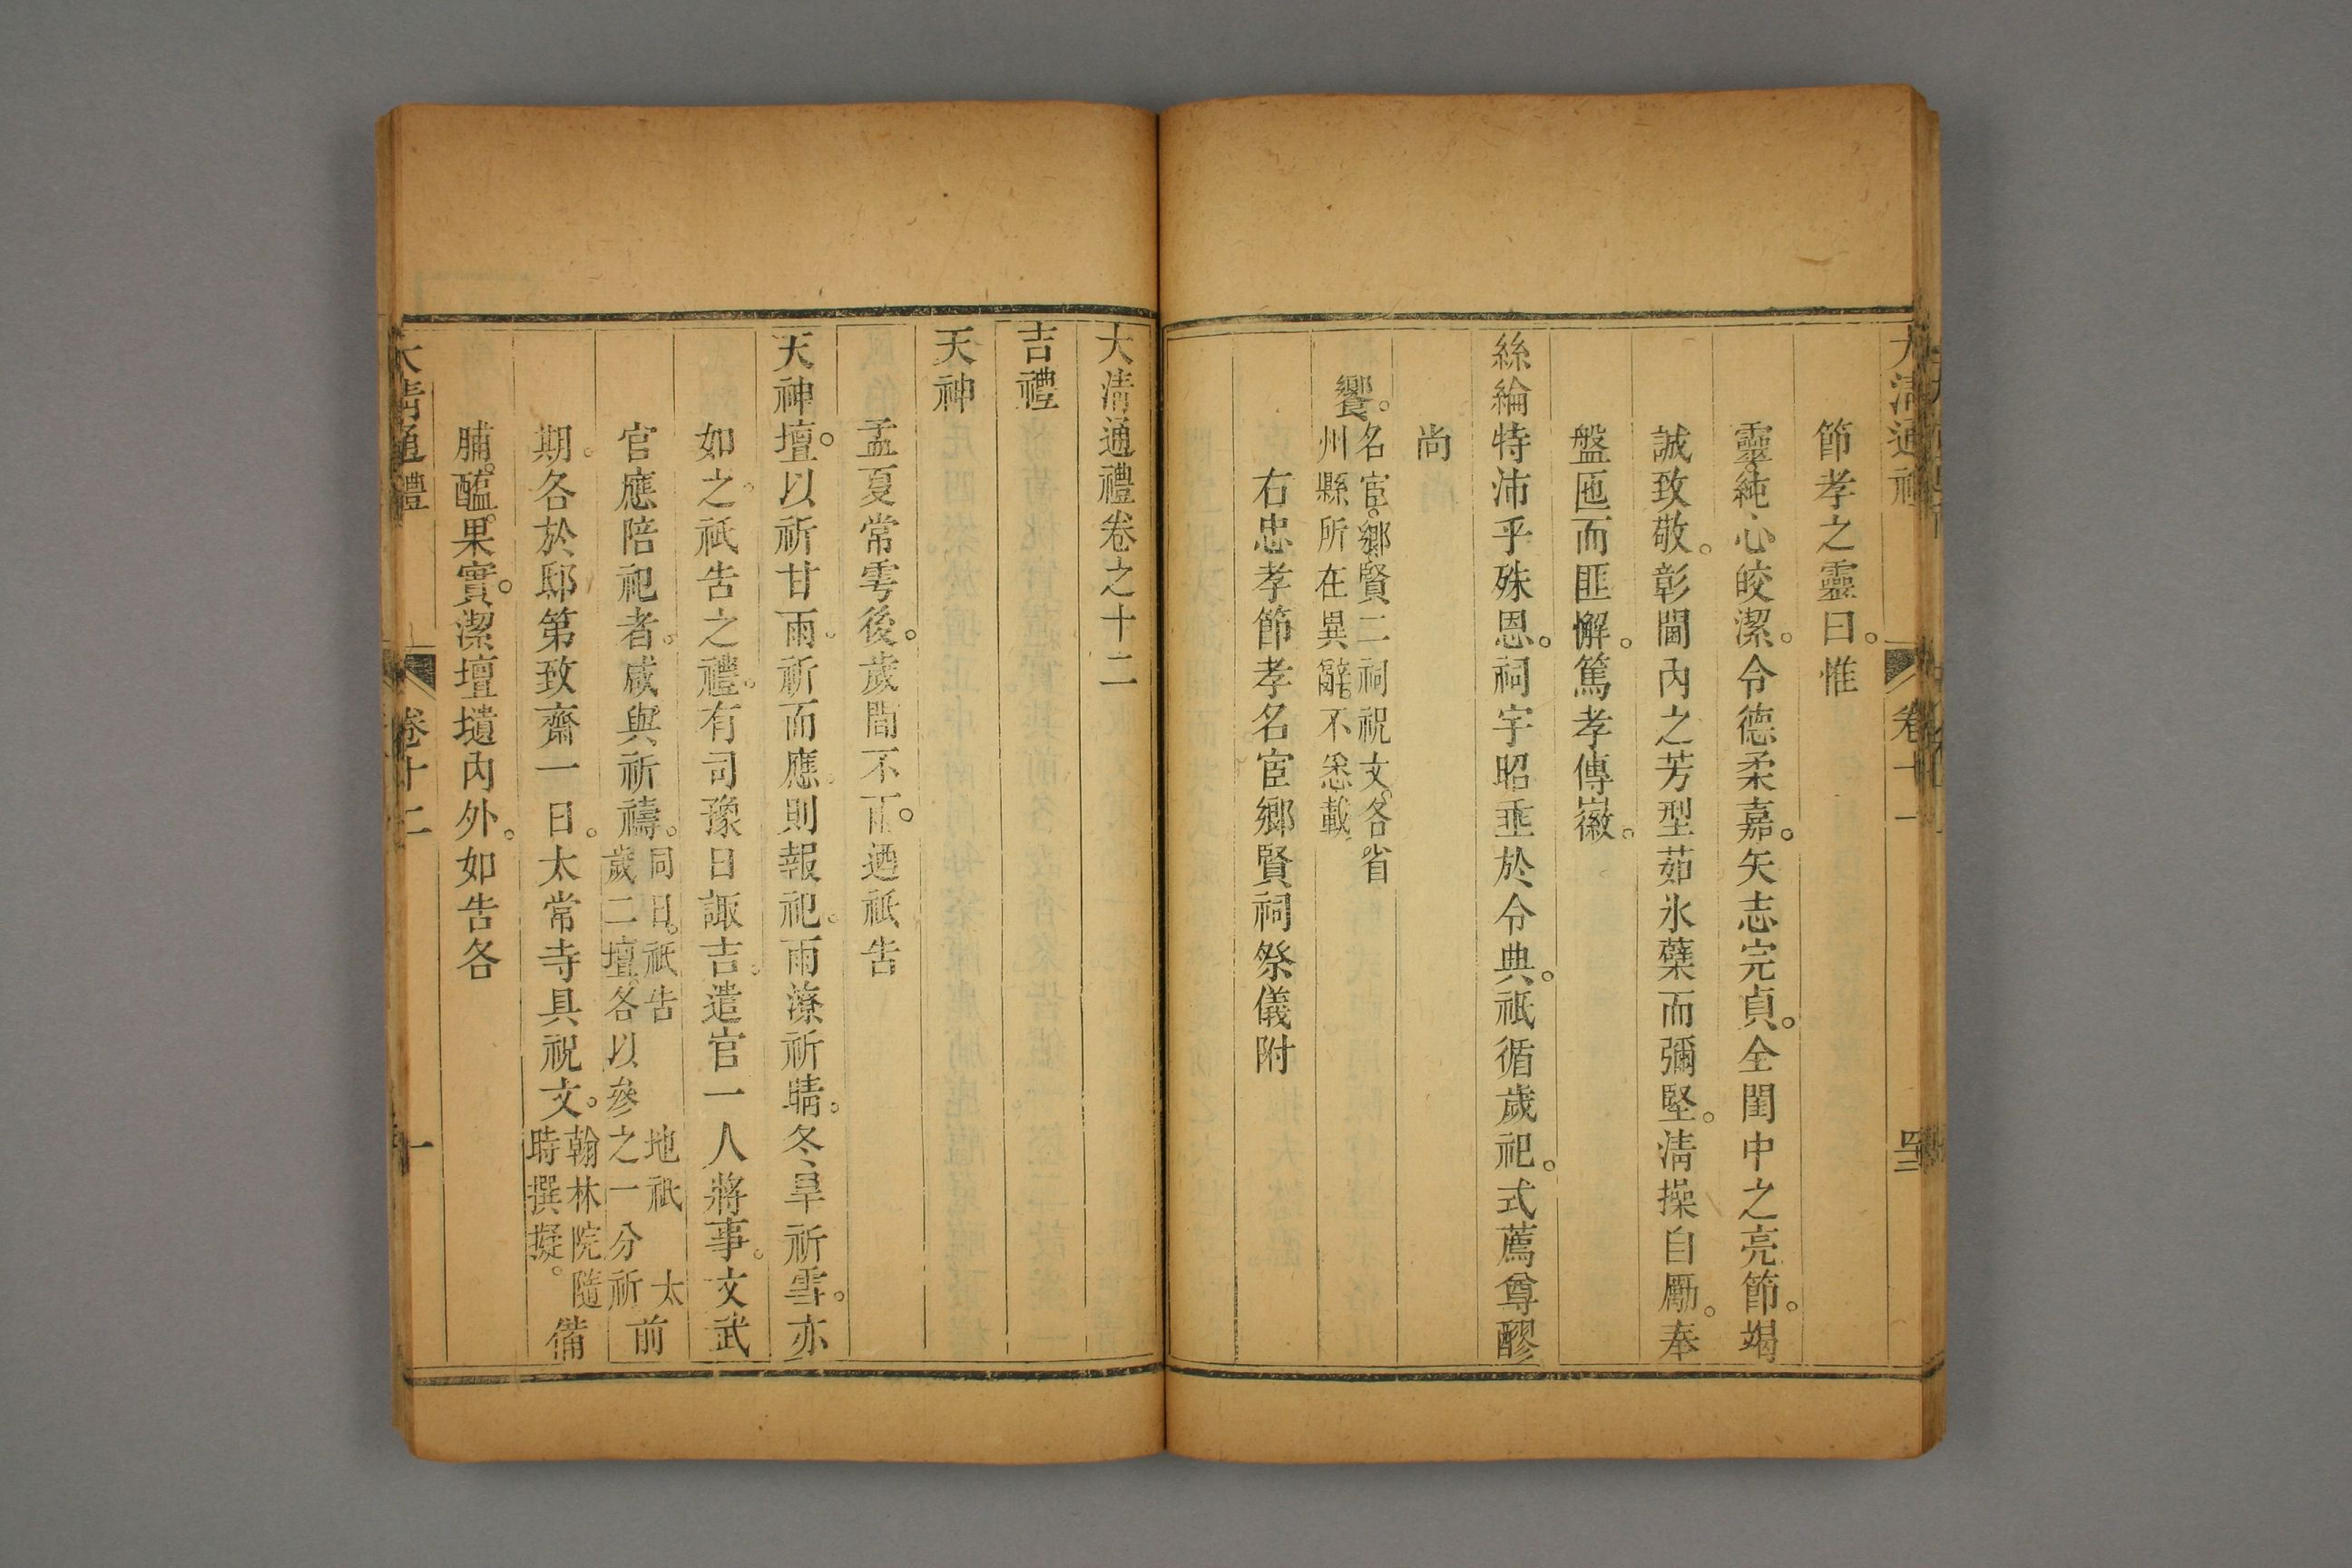 大清通禮
卷十一
節孝之靈曰。惟
靈。純心皎潔。令德柔嘉。矢志完貞。全閨中之亮節。竭
誠致敬。彰閫內之芳型。茹氷蘗而彌堅。淸操自勵。奉
盤匜而匪懈。篤孝傳徽。
絲綸特沛乎殊恩。祠宇昭垂於令典。祇循歲祀。式薦尊醪
尚
饗。名宦。鄉賢二祠祝文。各省
州縣所在異辭。不悉載
右忠孝節孝名宦鄉賢祠祭儀附
大淸通禮卷之十二
吉禮
天神
孟夏常雩後。歲間不雨。迺祇告
天神壇。以祈甘雨。祈而應。則報祀。雨潦祈晴。冬旱祈雪。亦
如之。祇告之禮。有司豫日諏吉。遣官一人將事。文武
官應陪祀者。咸與祈禱。同日。祇告 地祇 太
歲二壇。各以參之一分祈 前
期。各於邸第致齋一日。太常寺具祝文。翰林院隨
時撰擬。 備
脯。醢。果實。潔壇壝內外。如告各
大淸通禮
卷十二
一